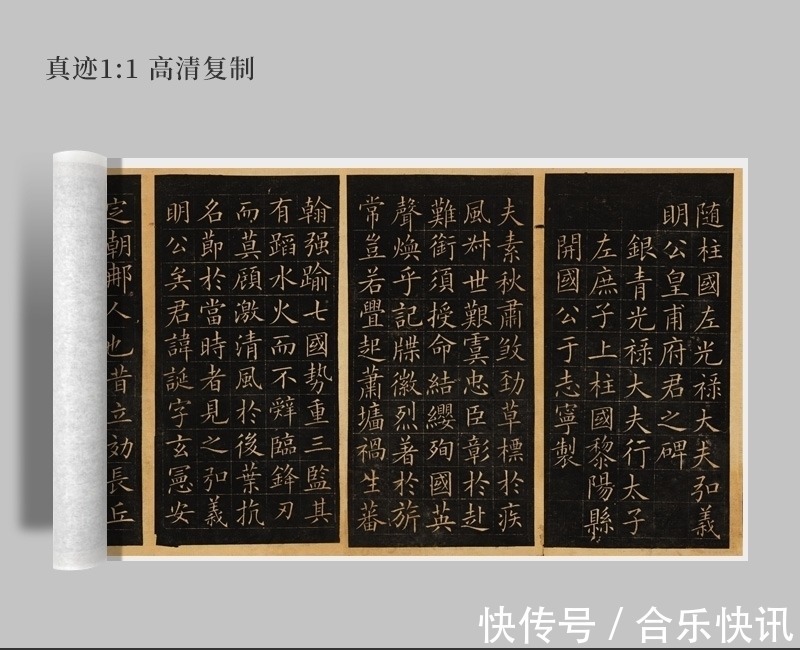 真迹1:1 高清复制
随柱國左光禄大夫弘義
明公皇甫府君之碑
銀青光禄大夫行太子
左庶子上柱國黎陽縣
開國公于志寧製
夫素秋肅煞勁草標於疾
風叶世艱虞忠臣彰於赴
難銜須授命結纓殉國英
聲煥乎記牒徽烈著於旂
常豈若舋起蕭墻禍生蕃
翰强踰七國勢重三監其
有蹈水火而不辤臨鋒刃
而莫顧激清風於後葉抗
名節於當時者見之弘義
明公矣君諱誕字玄憲安
定朝那人也昔立効長丘
快传号 / 合乐快讯